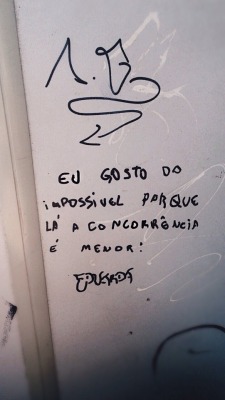 EU GOSTO DO
imPOSSÍVEL PORQUE
LÁ A CONCORRÊNCIA
É MENOR!